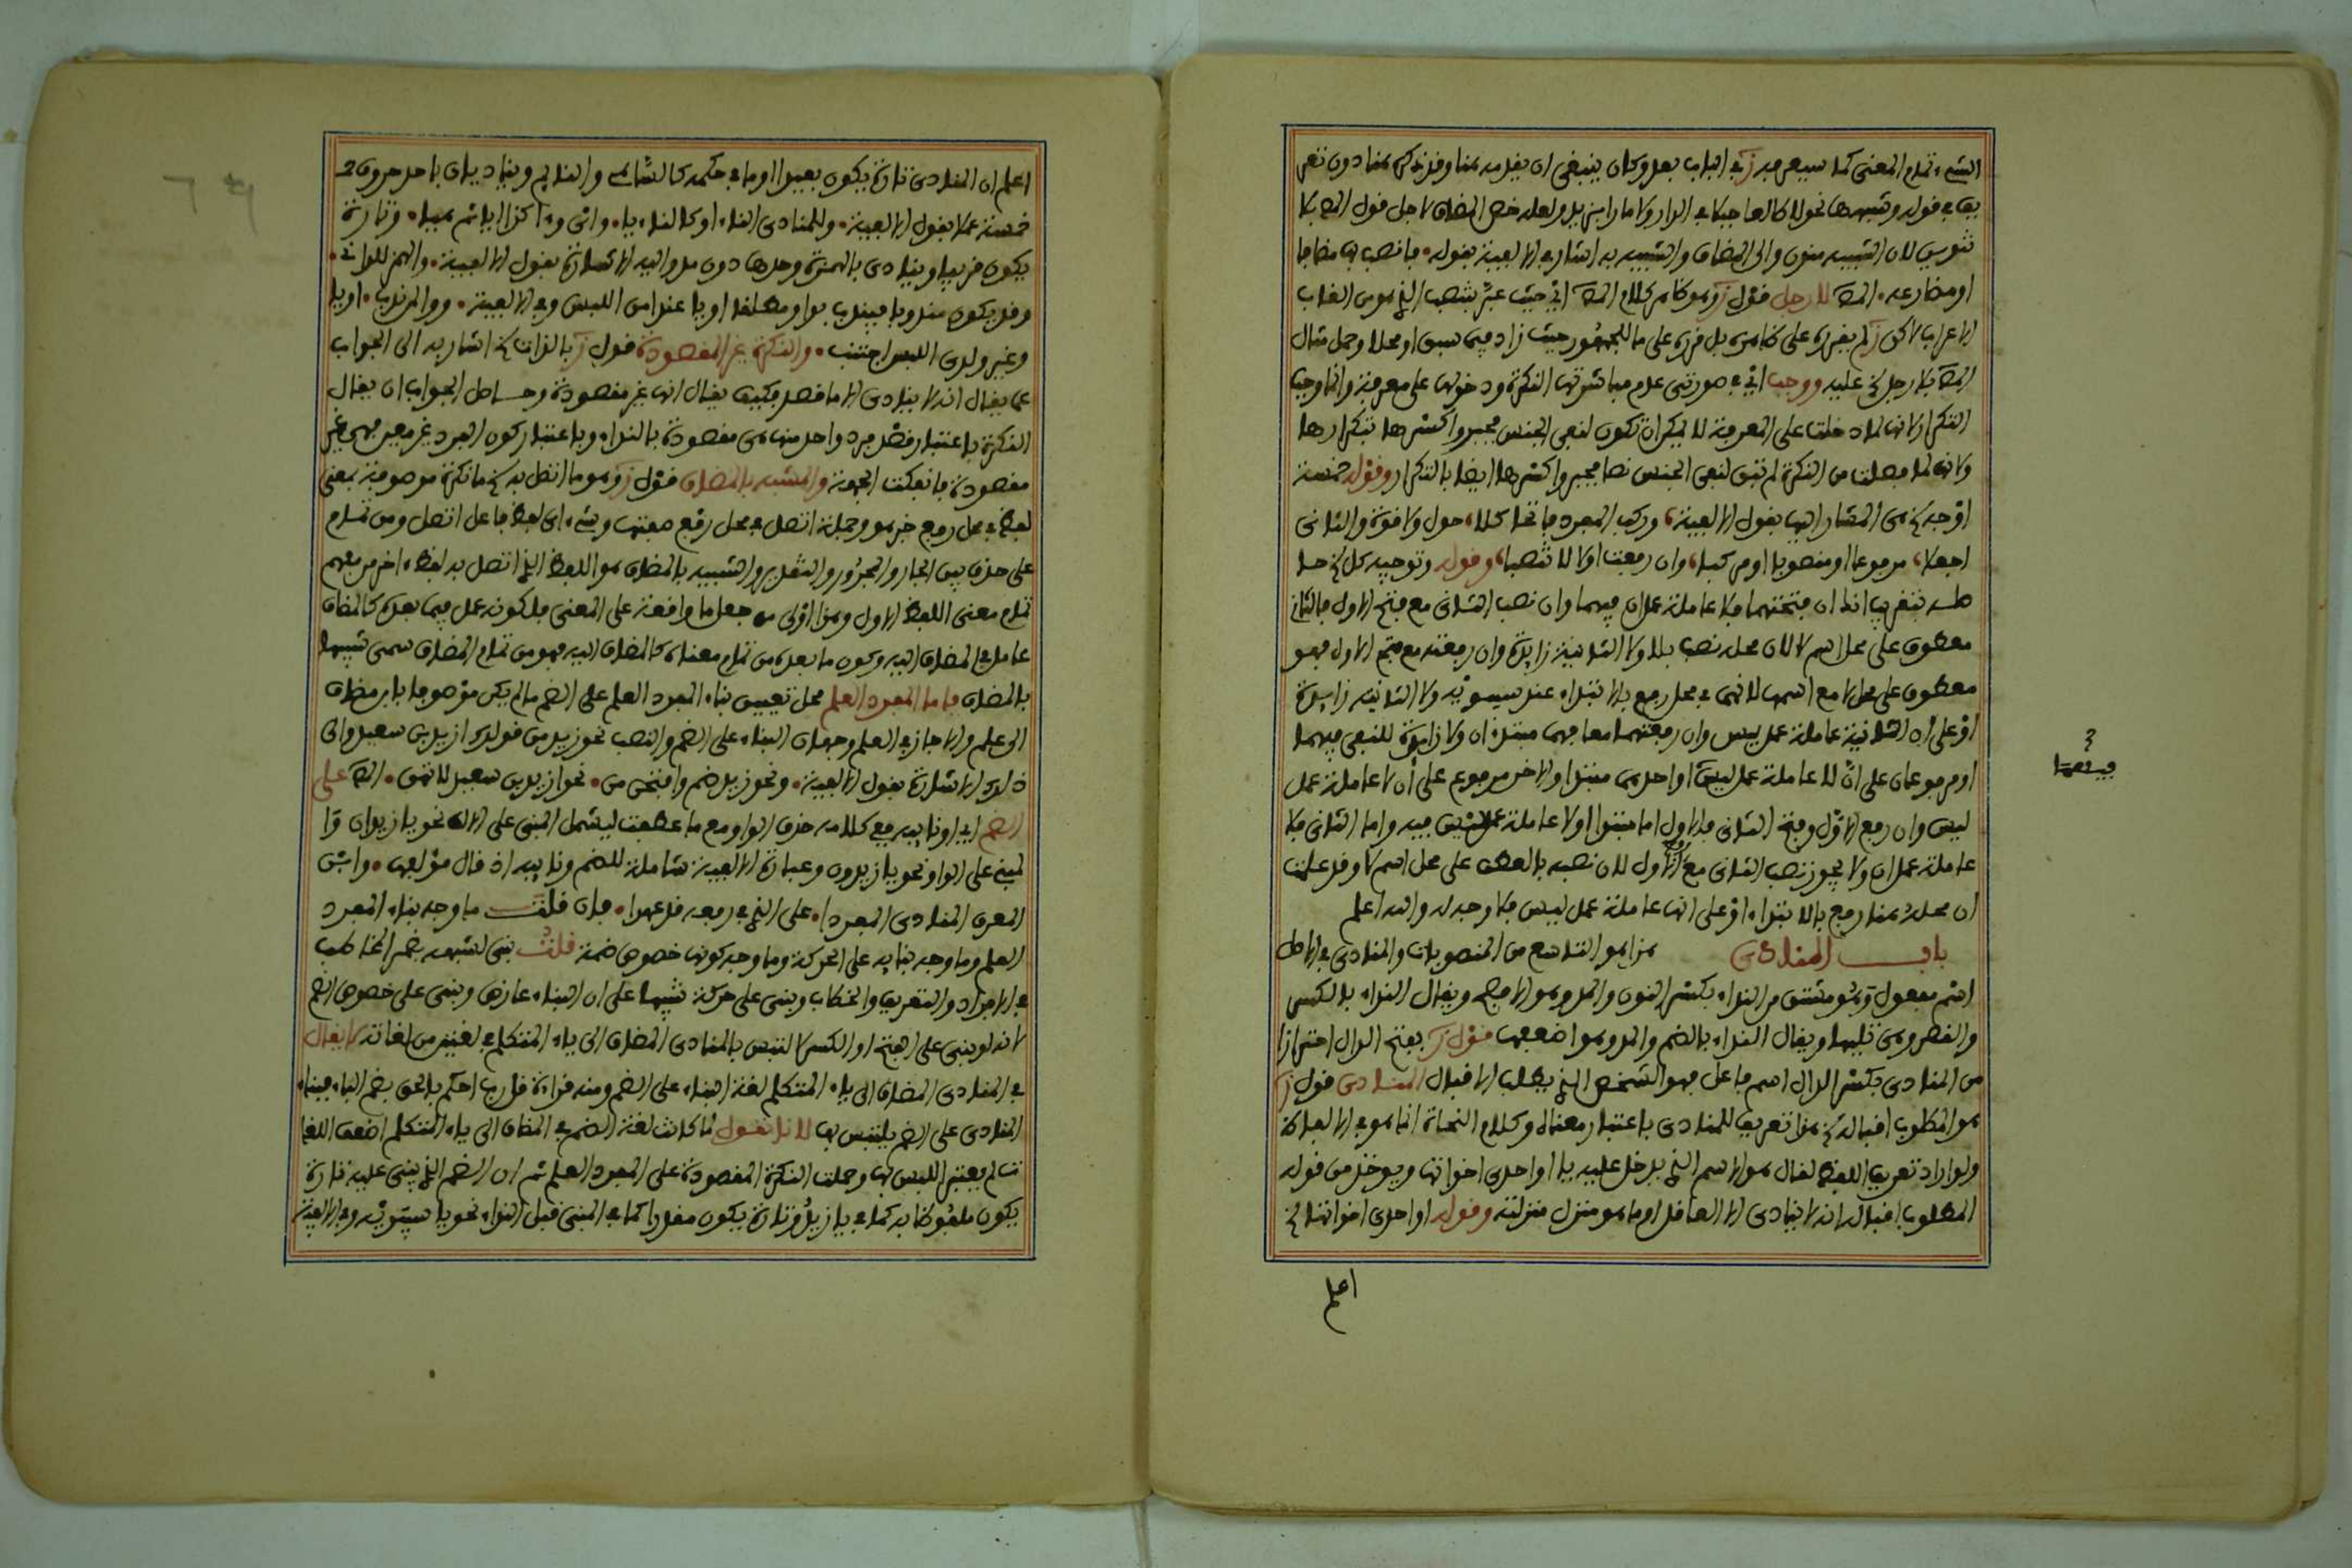 الشيء تمام المعنى كما سيصرح به ز في الباب بعد وكان ينبغي ان يقدمه هنا وقد ذكره هنا دون
في قوله وشبهها نحو لا طالعا جبلا في الدار ولا مارا بزيد ولعله خص المضاف لاجل قول المص بلا
تنوين لان الشبيه منون والى المضاف والشبيه به اشار في الالفية بقوله فانصب بها مضافا
او مضارعه المص لا رجل قول ز وهو ظاهر كلام المص اي حيث عبر بنصب الذي هو من القاب
الاعراب لاكن ز لم يقرره على ظاهره بل قرره على ما للجمهور حيث زاد فيما سبق او محلا وحمل مثال
المص بلا رجل الخ عليه ووجب اي في صورتي عدم مباشرتها النكرة ودخولها على معرفة وانما وجب
التكرار لانها لما دخلت على المعرفة لا يمكن ان تكون لنفي الجنس فجبروا كسرها بتكرارها
ولانها لما فصلت من النكرة لم تبق لنفي الجنس نصا فجبروا كسرها ايضا بالتكرار وقوله خمسة
اوجه الخ هي المشار اليها بقول الالفية وركب المفرد فاتحا كلا حول ولا قوة والثاني
اجعلا مرفوعا او منصوبا او مركبا وان رفعت اولا لا تنصبا وقوله وتوجيه كل الخ حا
صله بتقريب انه ان فتحتهما فلا عاملة عمل ان فيهما وان نصب الثاني مع فتح الاول فالثاني
معطوف على محل اسم لا لان محله نصب بلا ولا الثانية زائدة وان رفعته مع فتح الاول فهو
معطوف على محل لا مع اسمها لانهما في محل رفع بالابتداء عند سيبويه ولا الثانية زائدة
او على ان الثانية عاملة عمل ليس وان رفعتهما معا فهما مبتدءان ولا زائدة للنفي فيهما
او مرفوعان على ان لا عاملة عمل ليس او احدهما مبتدا والاخر مرفوع على ان لا عاملة عمل
ليس وان رفع الاول وفتح الثاني فالاول اما مبتدا او لا عاملة عمل ليس فيه واما الثاني فلا
عاملة عمل ان ولا يجوز نصب الثاني مع رفع الاول لان نصبه بالعطف على محل اسم لا وقد علمت
ان محله هنا رفع بالابتداء او على انها عاملة عمل ليس فلا وجه له والله اعلم
باب المنادى هذا هو التاسع من المنصوبات والمنادى في الاصل
اسم مفعول وهو مشتق من النداء بكسر النون والمد وهو الافصح ويقال النداء بالكسر
والقصر وهي تليها ويقال النداء بالضم والمد وهو اضعفها قول ز بفتح الدال احترازا
من المنادي بكسر الدال اسم فاعل فهو الشخص الذي يطلب الاقبال المنادى قول ز
هو المطلوب اقباله الخ هذا تعريف للمنادى باعتبار معناه وكلام النحاة انما هو في الالفاظ
ولو اراد تعريف اللفظ لقال هو الاسم الذي يدخل عليه يا او احدى اخواتها ويوخذ من قوله
المطلوب اقباله انه لا ينادى الا العاقل او ما هو منزل منزلته وقوله او احدى اخواتها الخ
اعلم
اعلم ان المنادى تارة يكون بعيدا او ما في حكمه كالساهي والنائم ويناديان باحد حروف
خمسة عملا بقول الالفية وللمنادى الناء او كالناء يا واي وءا كذا ايا ثم هيا وتارة
يكون قريبا وينادى بالهمزة وحدها دون مد واليه الاشارة بقول الالفية والهمز للداني
وقد يكون مندوبا فيندب بوا ومطلقا او يا عند امن اللبس وفي الالفية ووا لمن ندب او يا
وغير وا لدى اللبس اجتنب والنكرة غير المقصودة قول ز بالذات الخ اشار به الى الجواب
عما يقال انه لا ينادى الا ما قصد فكيف يقال انها غير مقصودة وحاصل الجواب ان يقال
النكرة باعتبار قصد فرد واحد منها هي مقصودة بالنداء وباعتبار كون الفرد غير معين فهي غير
مقصودة فانفكت الجهة والمشبه بالمضاف قول ز وهو ما اتصل به الخ ما نكرة موصوفة بمعنى
لفظ في محل رفع خبر هو وجملة اتصل في محل رفع صفتها وشيء اي لفظ فاعل اتصل ومن تمام
على حذف بين الجار والمجرور والتقدير والشبيه بالمضاف هو اللفظ الذي اتصل به لفظ اخر من فهم
تمام معنى اللفظ الاول وهذا اولى من جعل ما واقعة على المعنى فلكونه عمل فيما بعده كالمضاف
عامل في المضاف اليه وكون ما بعده من تمام معناه كالمضاف اليه فهو من تمام المضاف سمى شبيها
بالمضاف فاما المفرد العلم محل تعيين بناء المفرد العلم على الضم ما لم يكن موصوفا بابن مضاف
الى علم والا جاز في العلم وجهان البناء على الضم والنصب نحو زيد من قولك ازيد بن سعيد والى
ذلك الاشارة بقول الالفية ونحو زيد ضم وافتحن من نحو ازيد بن سعيد لا تهن المص على
الضم اي او نايبه ففي كلامه حذف الواو مع ما عطفت ليشمل المبني على الالف نحو يا زيدان وا
لمبني على الواو نحو يا زيدون وعبارة الالفية شاملة للضم ونايبه اذ قال مؤلفها وابن
المعرف المنادى المفردا على الذي في رفعه قد عهدا فان قلت ما وجه بناء المفرد
العلم وما وجه بنايه على الحركة وما وجه كونها خصوص ضمة قلت بني لشبهه بضمير المخاطب
في الافراد والتعريف والخطاب وبني على حركة تنبيها على ان البناء عارض وبني على خصوص الضم
لانه لو بني على الفتح او الكسر لالتبس بالمنادى المضاف الى ياء المتكلم في لغتين من لغاته لا يقال
في المنادى المضاف الى ياء المتكلم لغة البناء على الضم ومنه قراءة قل رب احكم بالحق بضم الباء فبناء
المنادى على الضم يلتبس بها لانا نقول لما كانت لغة الضم في المضاف الى ياء المتكلم اضعف اللغا
ت لم يعتبر اللبس بها وحملت النكرة المقصودة على المفرد العلم ثم ان الضم الذي يبنى عليه تارة
يكون ملفوظا به كما في يا زيد وتارة يكون مقدرا كما في المبني قبل النداء نحو يا سيبويه وفي الالفية